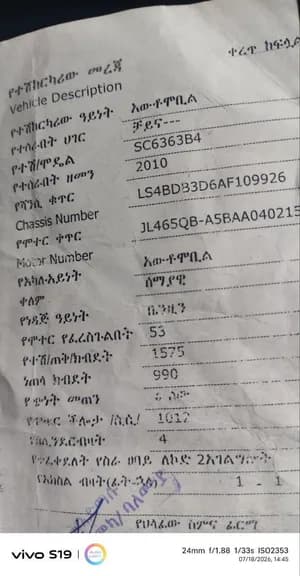 ተረጥ ከፍሏል
የተሽከርካሪው መረጃ
Vehicle Description
የተሽከርካሪው ዓይነት አውቶሞቢል
የተሰራበት ሀገር ቻይና---
የተሽ/ሞዴል SC6363B4
የተሰራበት ዘመን 2010
የሻንሲ ቁጥር LS4BDB3D6AF109926
Chassis Number
የሞተር ቁጥር JL465QB-A5BAA040215
Motor Number
የአካል-አይነት አውቶሞቢል
ቀለም ሰማያዊ
የነዳጅ ዓይነት ቤንዚን
የሞተር የፈረስጉልበት 53
የተሽ/ጠቅ/ክብደት 1575
ነጠላ ክብደት 990
የጭነት መጠን
ችሎታ /ሲ.ሲ./ 1012
የሲሊንደር ብዛት 4
የተፈቀደለት የስራ ፀባይ ለኮድ 2 አገልግሎት
የአክስል ብዛት(ፊት-ኋላ) 1 - 1
የሀላፊው ስምና ፊርማ
vivo S19
24mm f/1.88 1/33s ISO2353
07/18/2026, 14:45